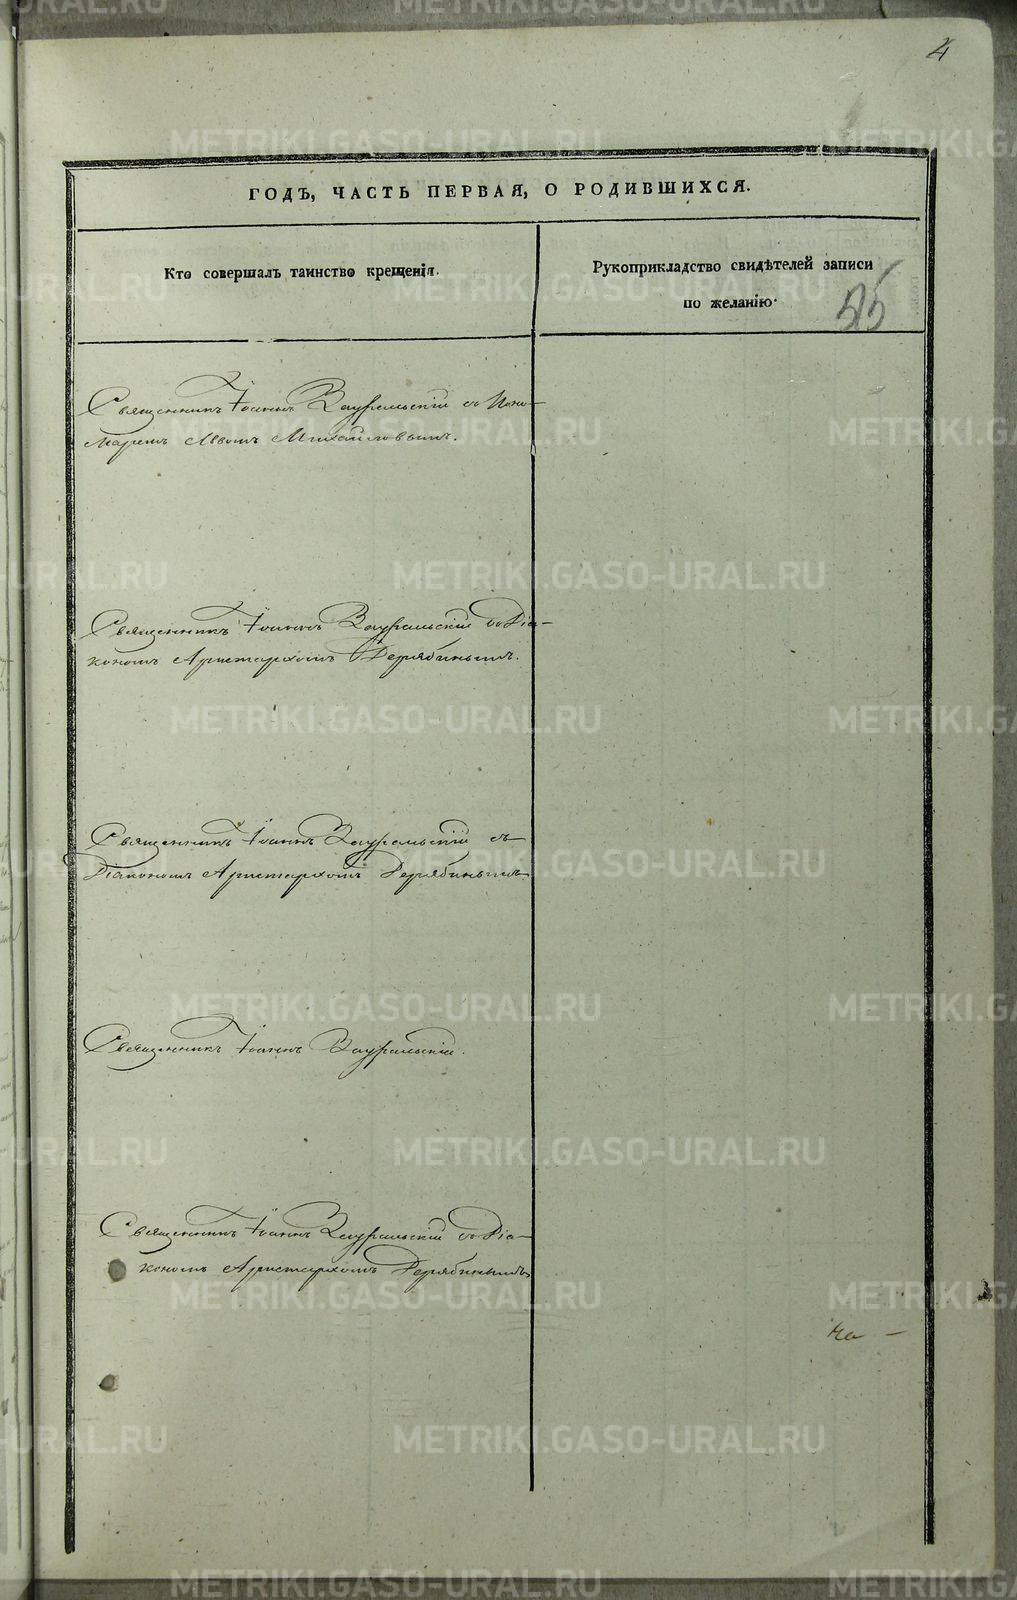 4
ГОДЪ, ЧАСТЬ ПЕРВАЯ, О РОДИВШИХСЯ.
Кто совершалъ таинство крещенія.
Рукоприкладство свидѣтелей записи
по желанію.
Священникъ Іоаннъ Зауральскій съ Поно-
маремъ Львомъ Михайловымъ.
Священникъ Іоаннъ Зауральскій со Діа-
кономъ Аристархомъ Дерябинымъ.
Священникъ Іоаннъ Зауральскій съ
Діакономъ Аристархомъ Дерябинымъ.
Священникъ Іоаннъ Зауральскій.
Священникъ Іоаннъ Зауральскій со Діа-
кономъ Аристархомъ Дерябинымъ
METRIKI.GASO-URAL.RU